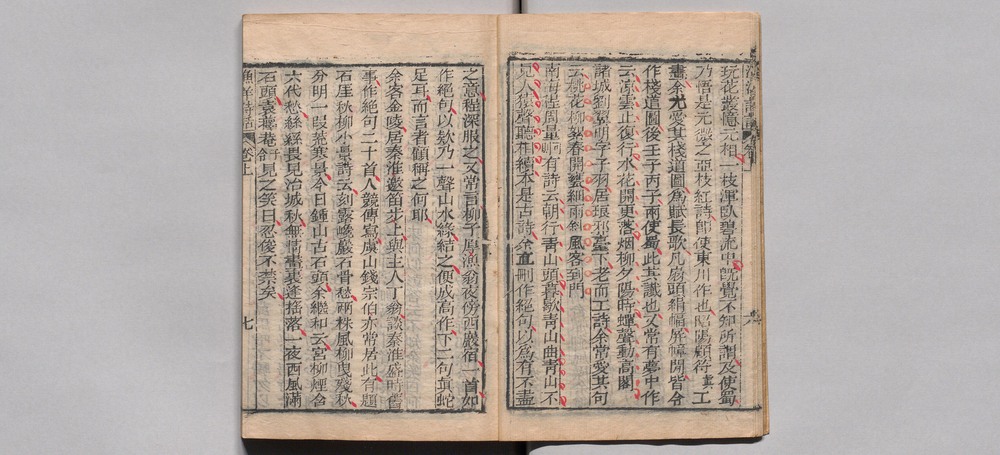 玩花叢憶元相一枝渾臥碧流中旣覺不知所謂及使蜀
乃悟是元微之亞枝紅詩卽使東川作也昭陽顧符眞工
畫余尤愛其棧道圖爲賦長歌凡扇頭絹幅屛幛間皆令
作棧道圖後壬子丙子兩使蜀此其讖也又常有夢中作
云深雲正復行水花開更落烟柳夕陽時蟬聲動高閣
諸城劉翼明字子羽居琅邪臺下老而工詩余常愛其句
云桃花柳絮春開甕細雨斜風客到門
南海程周量峒有詩云朝行靑山頭暮歇靑山曲靑山不
見人猿聲聽相續本是古詩余直刪作絕句以爲有不盡
之意程深服之又常言柳子厚漁翁夜傍西巖宿一首如
作絕句以欸乃一聲山水綠結之便成高作下二句眞蛇
足耳而言者顧稱之何耶
余客金陵居秦淮邀笛步上與主人丁翁談秦淮盛時舊
事作絕句二十首人競傳寫虞山錢宗伯亦常居此有題
石厓秋柳小景詩云刻露巉巖石骨愁兩株風柳曳殘秋
分明一段荒寒景今日鍾山古石頭余繼和云宮柳煙含
六代愁絲絲畏見冶城秋無情畫裏逢搖落一夜西風滿
石頭袁籜菴見之笑曰忍俊不禁矣
漁洋詩話
卷上
七